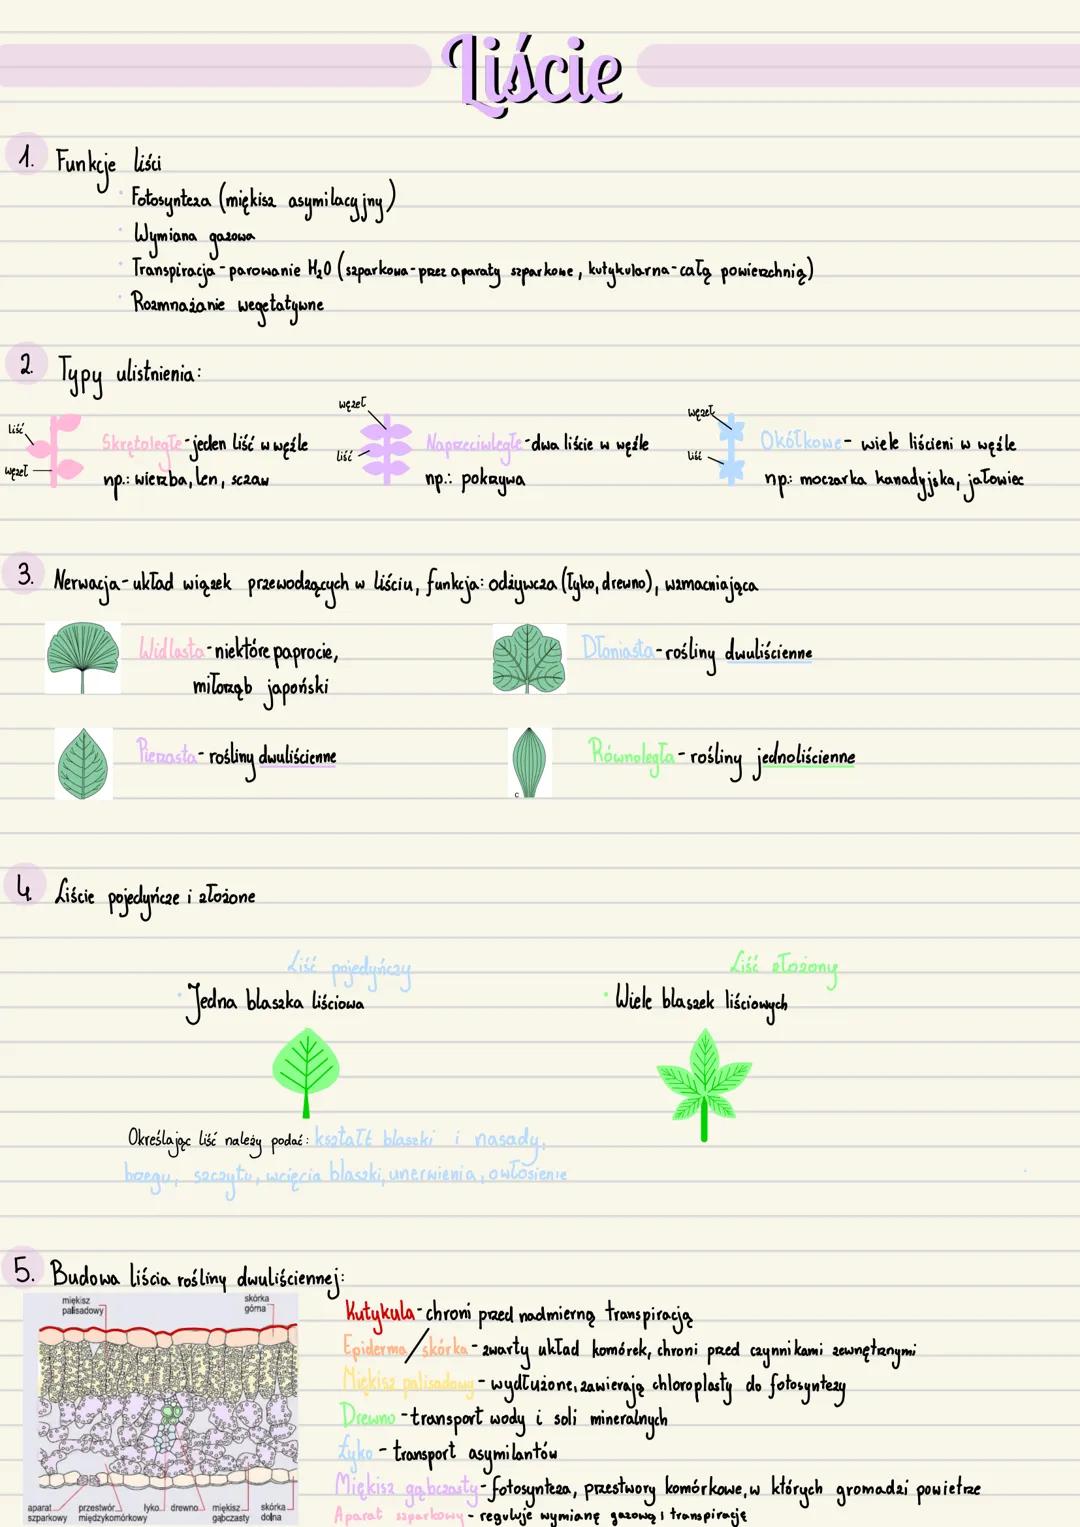 Liście
1. Funkcje liści
· Fotosynteza (miękisz asymilacyjny)
· Wymiana gazowa
· Transpiracja - parowanie H₂O (szparkowa - przez aparaty szparkowe, kutykularna - całą powierzchnią)
· Rozmnażanie wegetatywne
2. Typy ulistnienia:
liść
węzeł
Skrętoległe - jeden liść w węźle
np.: wierzba, len, szczaw
węzeł
liść
Naprzeciwległe - dwa liście w węźle
np.: pokrzywa
węzeł
liść
Okółkowe - wiele liścieni w węźle
np.: moczarka kanadyjska, jałowiec
3. Nerwacja - układ wiązek przewodzących w liściu, funkcja: odżywcza (łyko, drewno), wzmacniająca
Widlasta - niektóre paprocie,
miłorząb japoński
Dłoniasta - rośliny dwuliścienne
Pierzasta - rośliny dwuliścienne
c
Równoległa - rośliny jednoliścienne
4. Liście pojedyńcze i złożone
Liść pojedyńczy
· Jedna blaszka liściowa
Liść złożony
· Wiele blaszek liściowych
Określając liść należy podać: kształt blaszki i nasady,
brzegu, szczytu, wcięcia blaszki, unerwienia, owłosienie
5. Budowa liścia rośliny dwuliściennej:
miękisz
palisadowy
skórka
górna
aparat
szparkowy
przestwór
międzykomórkowy
łyko
drewno
miękisz
gąbczasty
skórka
dolna
Kutykula - chroni przed nadmierną transpiracją
Epiderma/skórka - zwarty układ komórek, chroni przed czynnikami zewnętrznymi
Miękisz palisadowy - wydłużone, zawierają chloroplasty do fotosyntezy
Drewno - transport wody i soli mineralnych
Łyko - transport asymilantów
Miękisz gąbczasty - fotosynteza, przestwory komórkowe, w których gromadzi powietrze
Aparat szparkowy - reguluje wymianę gazową i transpirację